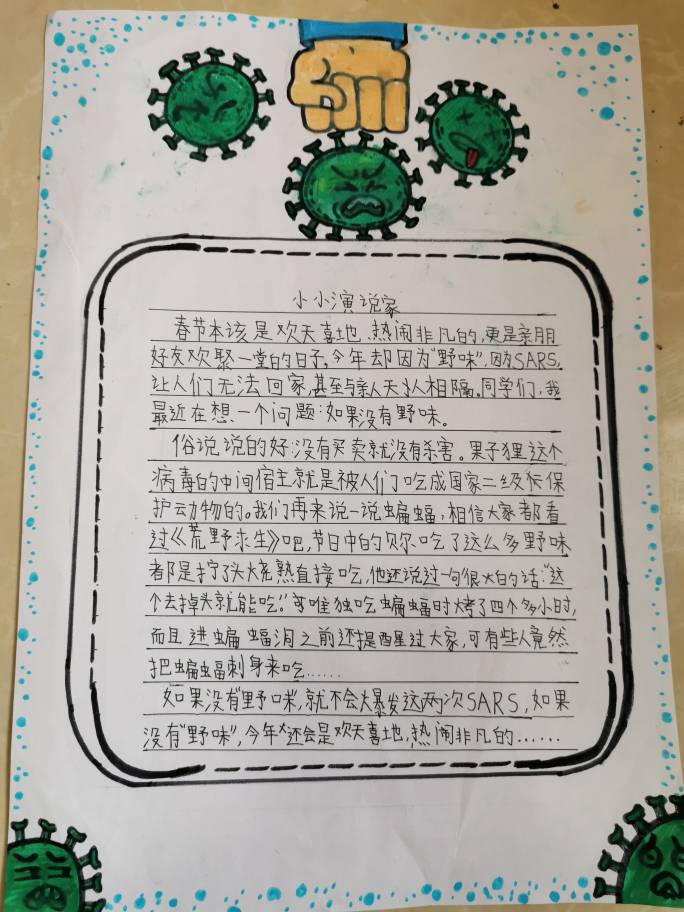 小小演说家
春节本该是欢天喜地、热闹非凡的,更是亲朋
好友欢聚一堂的日子。今年却因为“野味”,因为SARS,
让人们无法回家,甚至与亲人天人相隔。同学们,我
最近在想一个问题:如果没有野味。
俗说说的好:没有买卖就没有杀害。果子狸这个
病毒的中间宿主就是被人们吃成国家二级保
护动物的。我们再来说一说蝙蝠,相信大家都看
过《荒野求生》吧,节目中的贝尔吃了这么多野味
都是拧了头火烧熟直接吃,他还说过一句很火的话:“这
个去掉头就能吃。”可唯独吃蝙蝠时烤了四个多小时,
而且进蝙蝠洞之前还提醒过大家,可有些人竟然
把蝙蝠刺身来吃……
如果没有“野味”,就不会爆发这两次SARS,如果
没有“野味”,今年还会是欢天喜地,热闹非凡的……